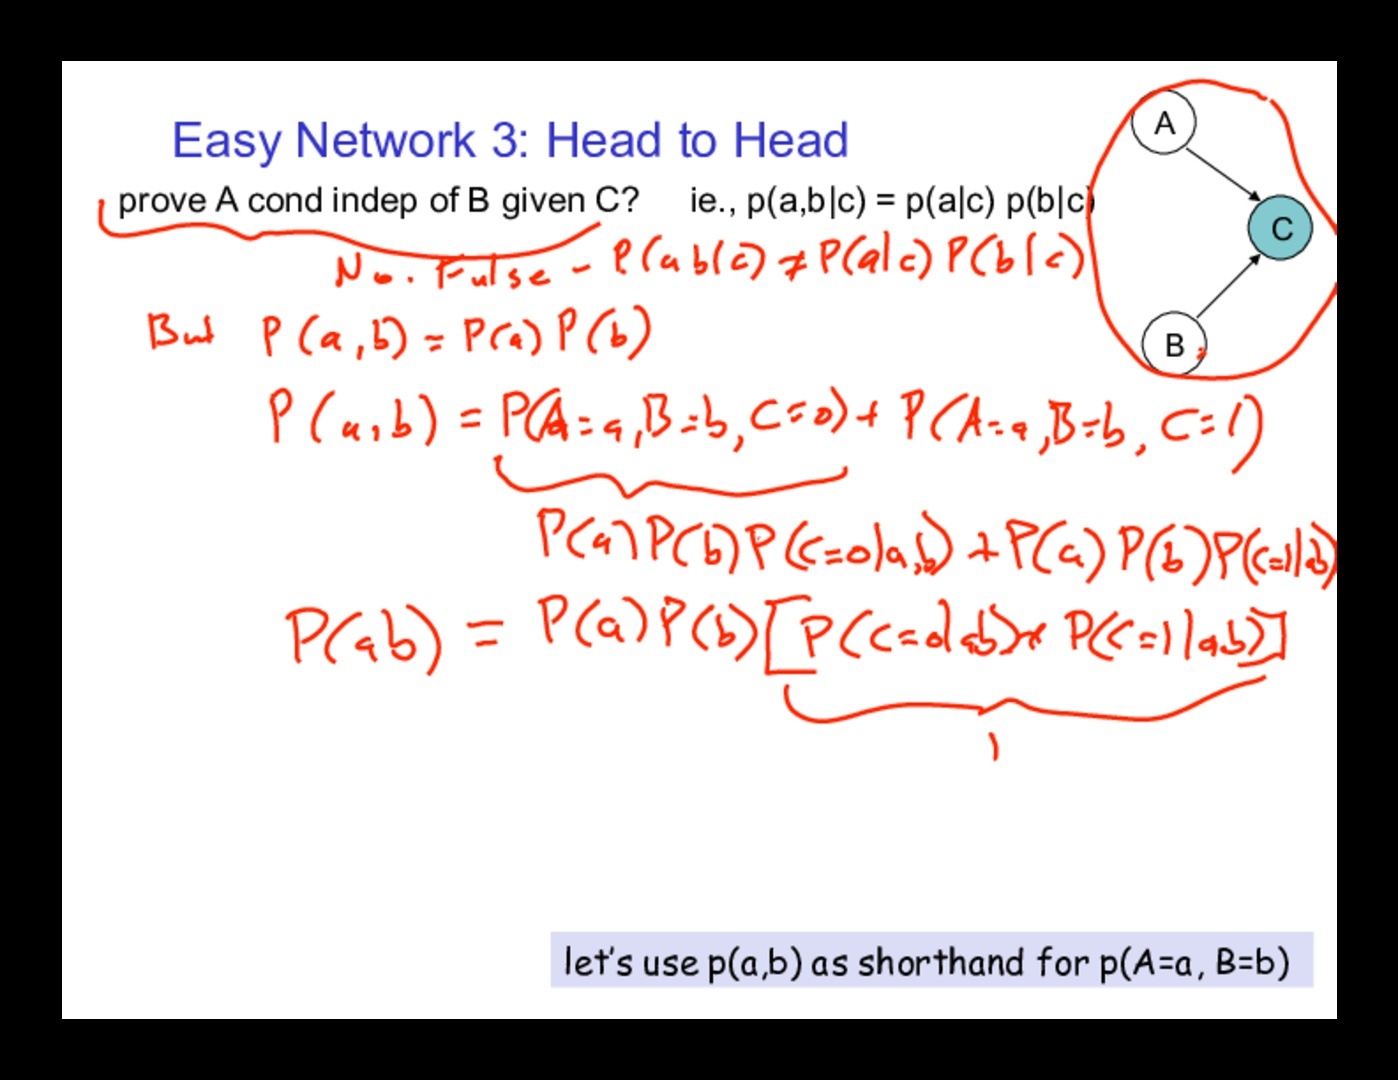 Easy Network 3: Head to Head
prove A cond indep of B given C? ie., p(a,b|c) = p(a|c) p(b|c)
A
C
B
No. False - P(ab|c) ≠ P(a|c) P(b|c)
But P(a,b) = P(a) P(b)
P(a,b) = P(A=a,B=b,C=0) + P(A=a,B=b,C=1)
P(a)P(b)P(C=0|a,b) + P(a)P(b)P(C=1|ab)
P(ab) = P(a)P(b)[P(C=0|ab) + P(C=1|ab)]
1
let's use p(a,b) as shorthand for p(A=a, B=b)